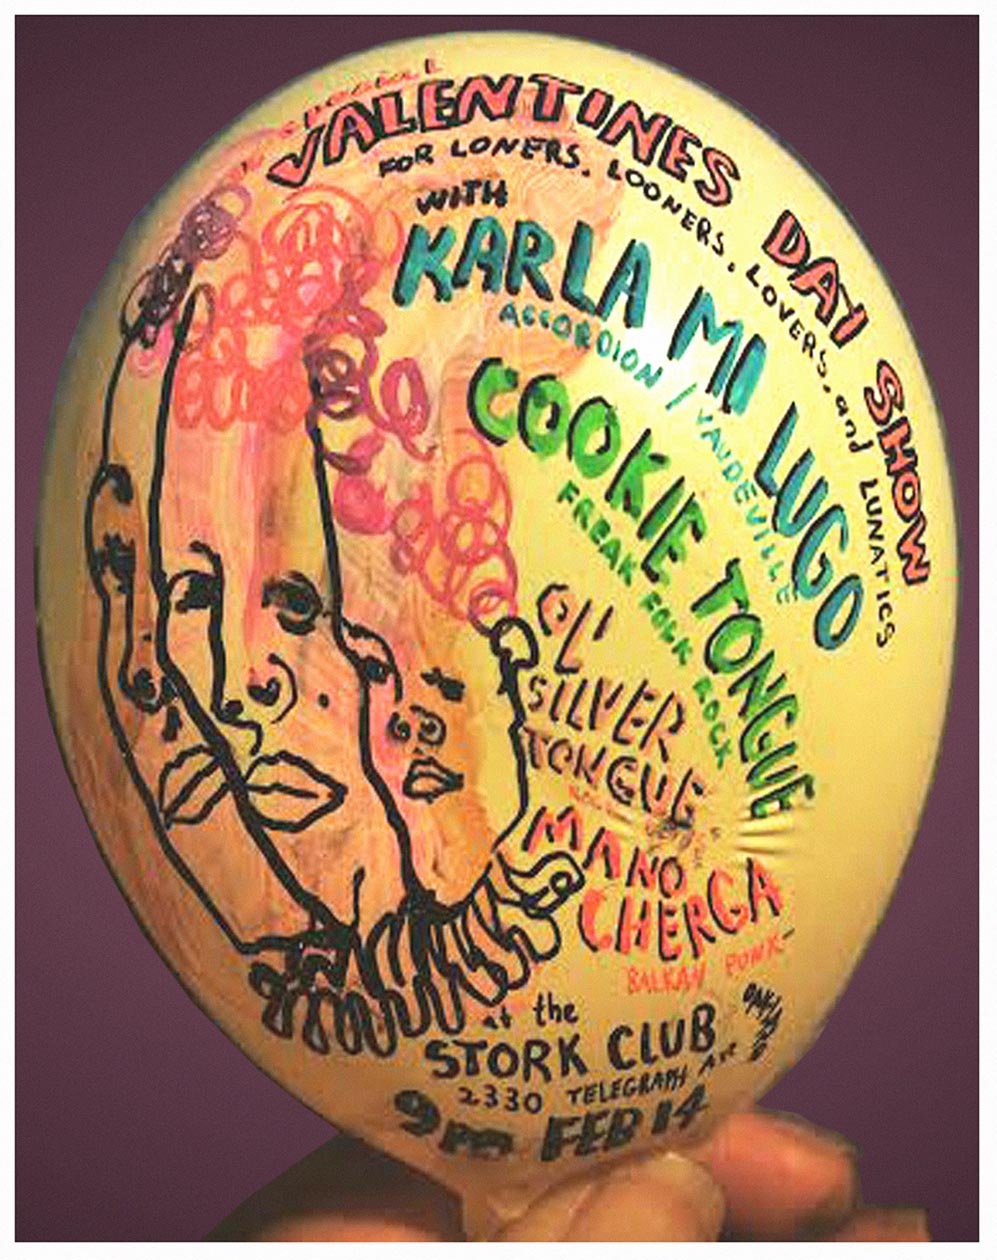 special
VALENTINES DAY SHOW
FOR LONERS, LOONERS, LOVERS, and LUNATICS
WITH
KARLA MI LUGO
ACCORDION / VAUDEVILLE
COOKIE TONGUE
FREAK FOLK ROCK
OL' SILVER TONGUE
MANO CHERGA
BALKAN PUNK
at the
STORK CLUB
2330 TELEGRAPH AVE
OAKLAND
9PM FEB 14